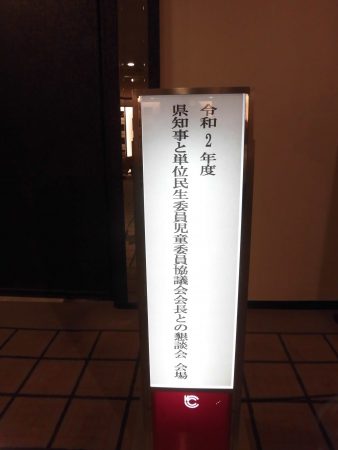 令和２年度
県知事と単位民生委員児童委員協議会会長との懇談会 会場